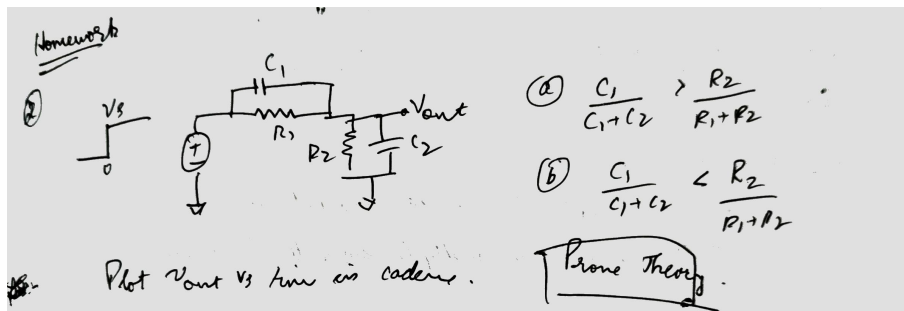 Homework
②
Vs
0
C1
R1
+
R2
C2
Vout
ⓐ C1/(C1+C2) > R2/(R1+R2)
ⓑ C1/(C1+C2) < R2/(R1+R2)
Plot Vout vs time in cadence.
Prove Theory